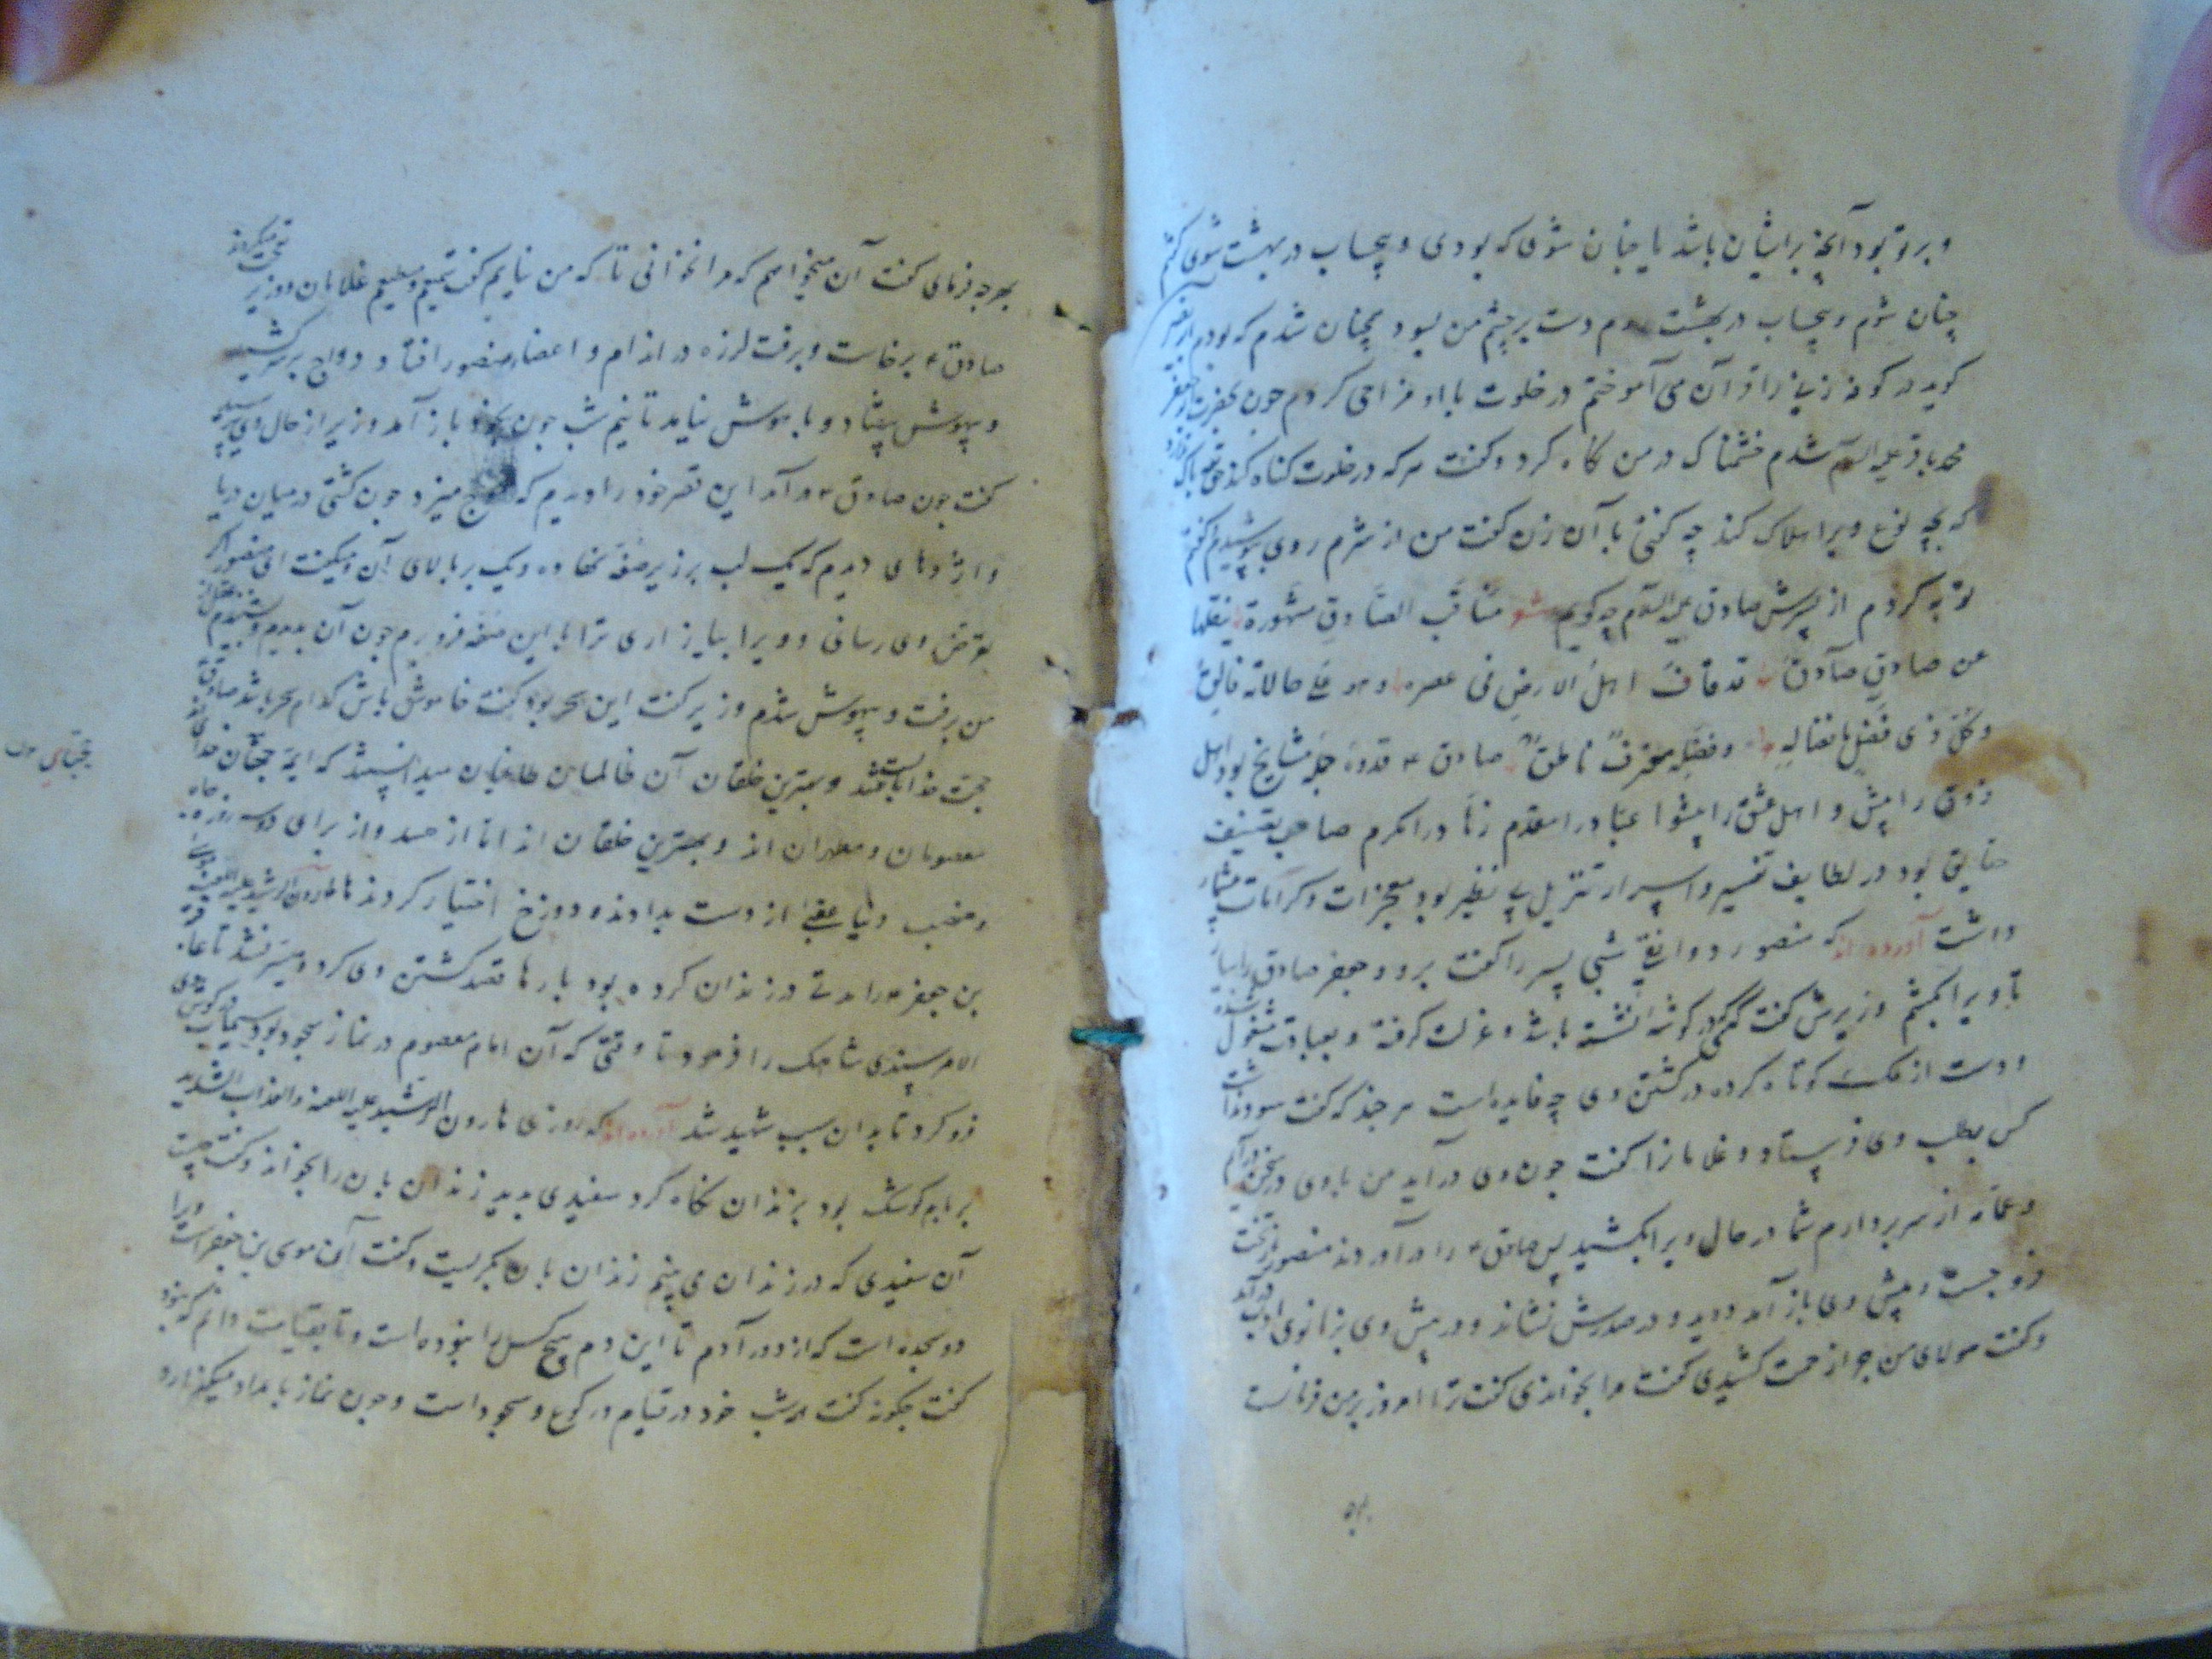 و بر تو بود آنچه بر ایشان باشد یا چنان شوی که بودی و بیحساب در بهشت شوی گفتم
چنان شوم و بیحساب در بهشت روم دست بر چشم من بسود همچنان شدم که بودم
گوید در کوفه زنیرا قرآن می آموختم در خلوت با او مزاحی کردم چون بحضرت
محمد باقر علیه السلام شدم خشمناک در من نگاه کرد و گفت هر که در خلوت گناه کند حق تعالی باک ندارد
که بچه نوع ویرا هلاک کند چه گفتی با آن زن گفت من از شرم روی بپوشیدم گفتم
توبه کردم از پسرش صادق علیه السلام چه گویم شعر مناقب الصادق مشهورة ینقلها
عن صادق صادق قد فاق اهل الارض فی عصره و هو علی حالاته فایق
و کل ذی فضل بافضاله و فضله معترف ناطق صادق ع قدوه جمله مشایخ بود اهل
ذوق را پیش و اهل عشق را پیشوا عباد را مقدم زهاد را مکرم صاحب تصنیف
حقایق بود در لطایف تفسیر و اسرار تنزیل بی نظیر بود معجزات و کرامات بسیار
داشت آورده اند که منصور دوانقی شبی پسر را گفت برو و جعفر صادق را بیار
تا ویرا بکشم وزیرش گفت کسی در گوشه نشسته باشد و عزلت گرفته و بعبادت مشغول شده
و دست از ملک کوتاه کرده در کشتن وی چه فایده است هر چند که گفت سود نداشت
کس بطلب وی فرستاد و غلامانرا گفت چون وی در آید من با وی در سخن درآیم
و عمامه از سر بردارم شما در حال ویرا بکشید پس صادق ع را در آوردند منصور از تخت
فرو جست و پیش وی باز آمد دوید و در صدرش نشاند و در پیش وی بزانوی ادب درآمد
و گفت مولای من چرا زحمت کشیدی گفت مرا بخواندی گفت ترا امروز بر من فرمانست
بهر
بهرچه فرمای گفت آن میخواهم که مرا نخوانی تا که من نیایم گفت غلامان و وزیر
صادق ع برخاست و برفت لرزه در اندام و اعضاء منصور افتاد و دواج بر سر کشید
و بیهوش بیفتاد و با هوش نیامد تا نیم شب چون بخود باز آمد وزیر از حال وی پرسید
گفت چون صادق ع در آمد این قصر خود را دیدم که موج میزد چون کشتی در میان دریا
و اژدهای دیدم که یک لب بر زیر صفه نهاده و یک بر بالای آن و میگفت ای منصور اگر
تعرض وی رسانی و ویرا بیازاری ترا با این صفه فرو برم چون آن بدیدم و بشنیدم عقل از
من برفت و بیهوش شدم وزیر گفت این سحر بود گفت خاموش باش کدام سحر باشد صادق
حجت خدایست و بهترین خلقان آن ظالمان طاغیان میدانستند که ایمه حجتان خدای اند
معصومان و مطهران اند و بهترین خلقان اند اما از حسد و از برای دو سه روزه جاه
و منصب دنیا عقبی از دست بدادند و دوزخ اختیار کردند هارون الرشید علیه اللعنه موسی
بن جعفر ع را مدتی در زندان کرده بود بارها قصد کشتن وی کرد و میسر نشد تا عاقبة
الامر سندی شاهک را فرمود تا وقتی که آن امام معصوم در نماز سجود بود سیماب در گوش وی
فرو کرد تا بدان سبب شهید شد آورده اند که روزی هارون الرشید علیه اللعنه و العذاب الشدید
بر بام کوشک بود بزندان نگاه کرد سفیدی بدید زندان بان را بخواند و گفت چیست
آن سفیدی که در زندان می بینم زندان بان بگریست و گفت آن موسی بن جعفر است ویرا
دو سجده است که از دور آدم تا این دم هیچ کس را نبوده است و تا بقیامت دانم که نبود
گفت چگونه گفت همه شب خود در قیام و رکوع و سجود است و چون نماز بامداد میگذارد